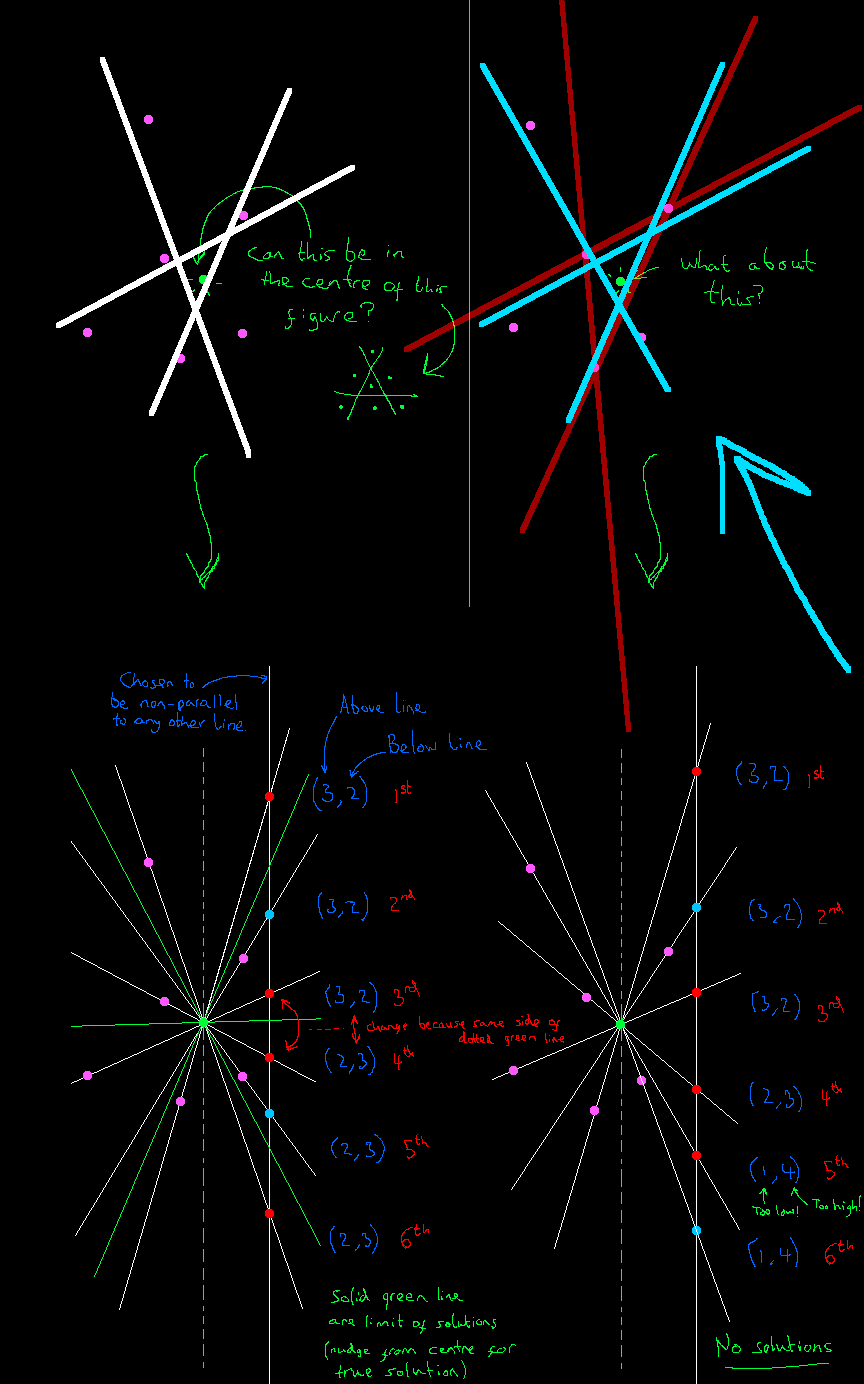 Can this be in
the centre of this
figure?
What about
this?
Chosen to
be non-parallel
to any other line.
Above line
Below line
(3,2) 1st
(3,2) 2nd
(3,2) 3rd
change because same side of
dotted green line
(2,3) 4th
(2,3) 5th
(2,3) 6th
Solid green line
are limit of solutions
(nudge from centre for
true solution)
(3,2) 1st
(3,2) 2nd
(3,2) 3rd
(2,3) 4th
(1,4) 5th
Too low!
Too high!
(1,4) 6th
No solutions